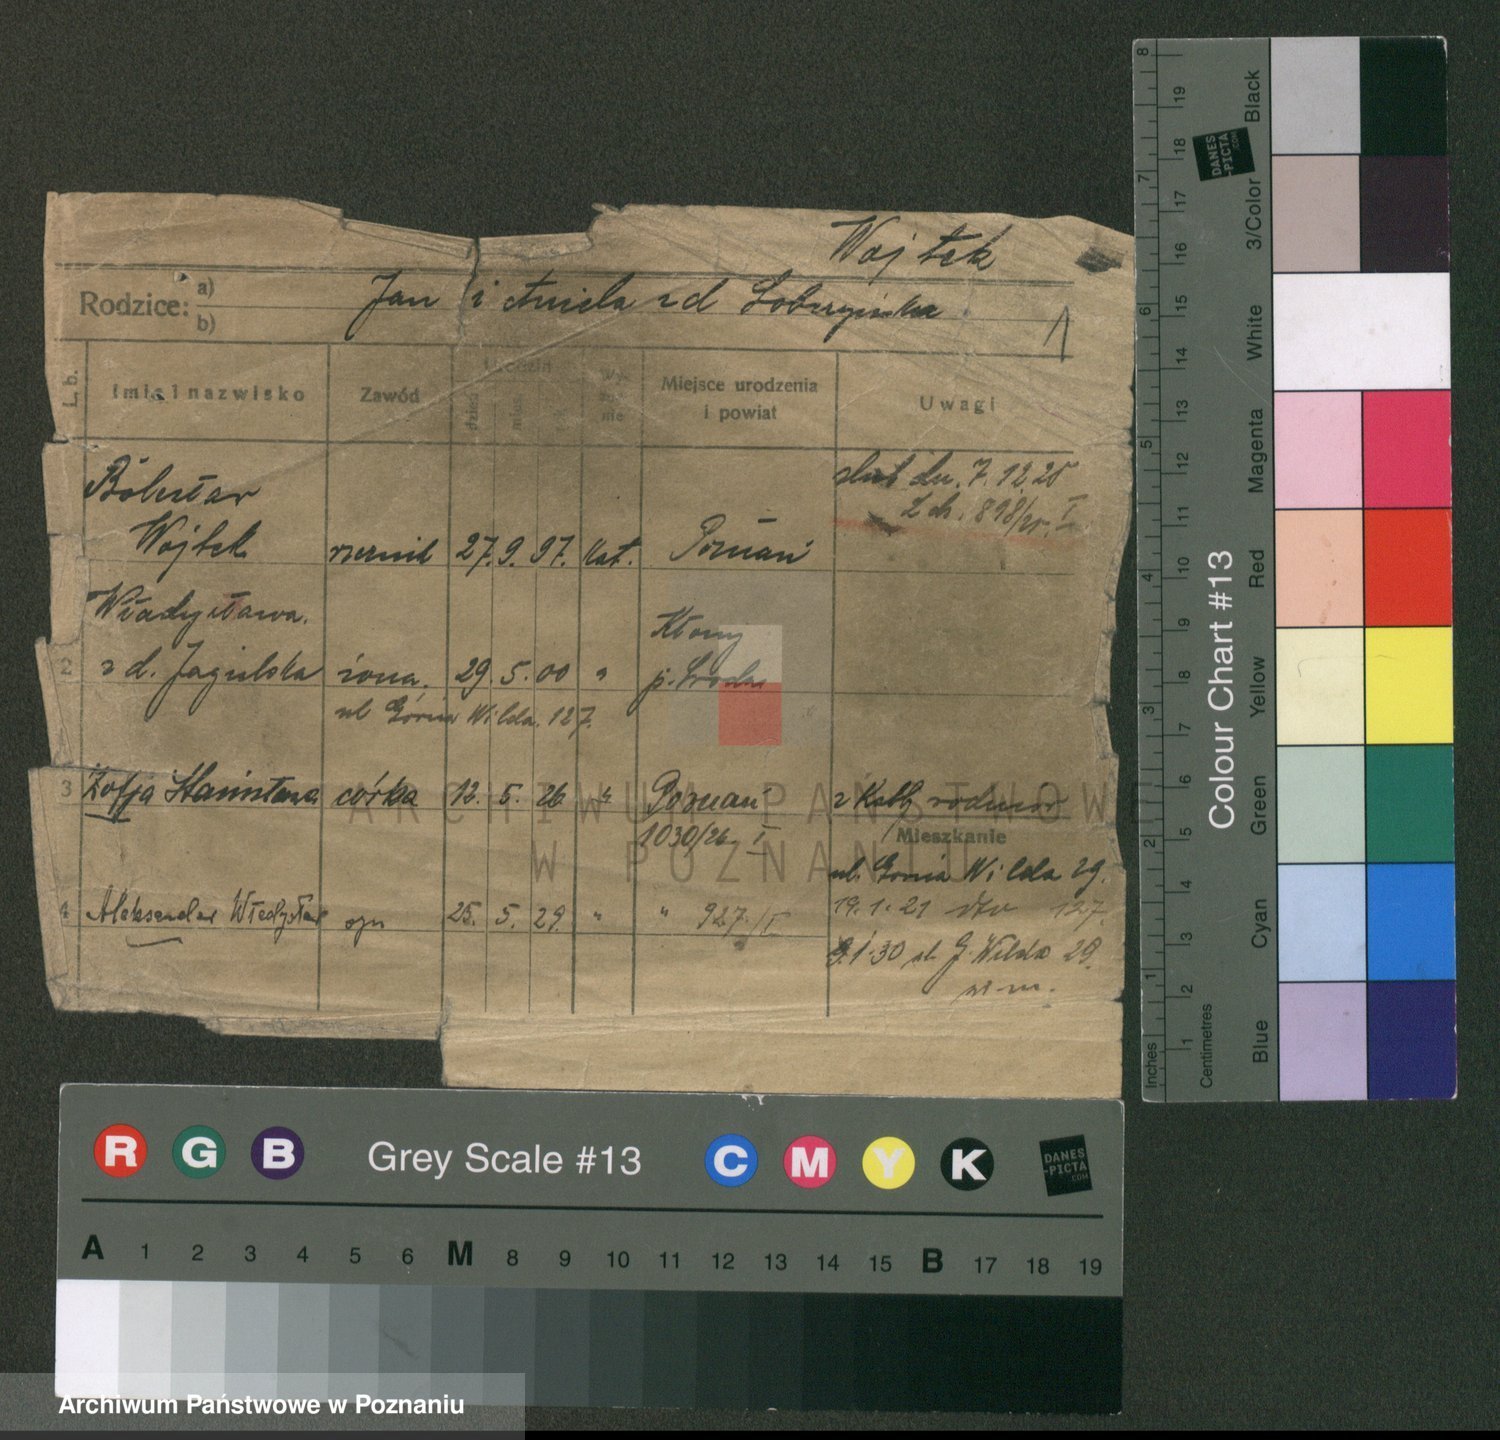 Wojtek
Rodzice: a) Jan i Aniela zd
b)
L. b. Imię i nazwisko Zawód Urodzin dzień mies. Wyznanie Miejsce urodzenia i powiat Uwagi
ślub dn. 7.12.25
L ch. 898/25. I
Bolesław
Wojtek rzeźnik 27. 9. 97. kat. Poznań
Władysława
2 z d. Jagielska żona 29. 5. 00 " Kłony p. Środa
ul Górna Wilda 127.
3 Zofja Stanisława córka 12. 5. 26 " Poznań z rodziców
1030/26 I
Mieszkanie
ul. Górna Wilda 29.
4 Aleksander Władysław syn 25. 5. 29 " " 927/I
19.1.21 dto 127.
9.1.30 ul. G. Wilda 29.
w m.
ARCHIWUM PAŃSTWOWE
W POZNANIU
8 19 18 7 17 16 6 15 14 13 5 12 11 4 10 9 8 3 7 6 2 5 4 3 1 2 1
Inches Centimetres
Colour Chart #13
Black 3/Color White Magenta Red Yellow Green Cyan Blue
DANES-PICTA.COM
R G B Grey Scale #13 C M Y K
DANES-PICTA.COM
A 1 2 3 4 5 6 M 8 9 10 11 12 13 14 15 B 17 18 19
Archiwum Państwowe w Poznaniu